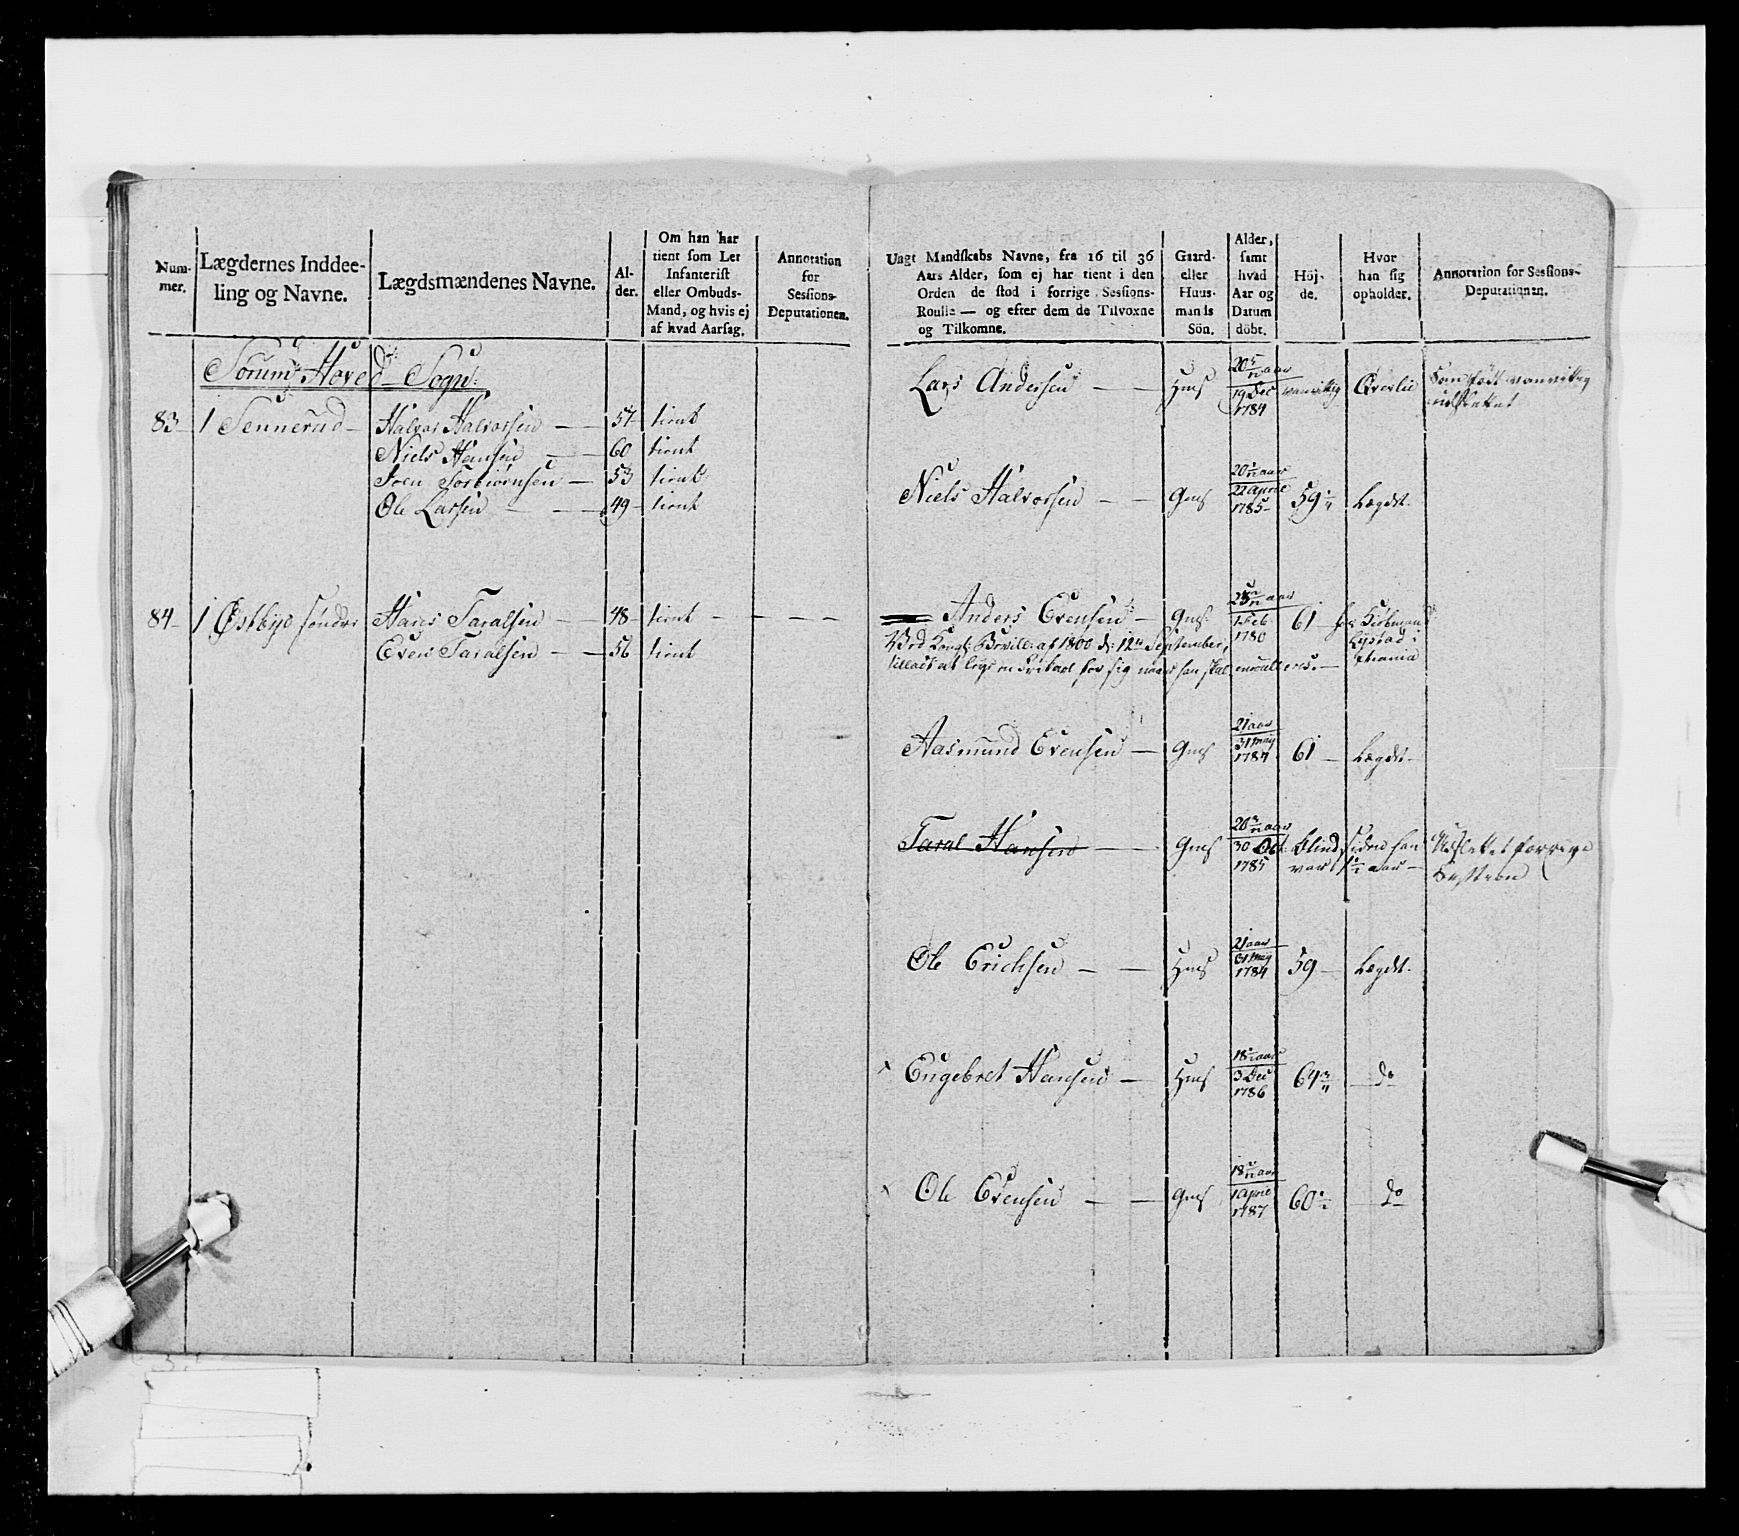 Num-
mer.
Lægdernes Inddee-
ling og Navne.
Lægdsmændenes Navne.
Al-
der.
Om han har
tient som Let
Infanterist
eller Ombuds-
Mand, og hvis ej
af hvad Aarsag.
Annotation
for
Sessions-
Deputationen.
Sørums Hoved Sogn:
83 1 Sennerud Halvor Halvorsen 57 tient
Niels Hansen 60 tient
Joen Torbiørnsen 53 tient
Ole Larsen 49 tient
84 1 Østbye søndre Hans Taralsen 48 tient
Even Taralsen 56 tient
Ungt Mandskabs Navne, fra 16 til 36
Aars Alder, som ej har tient i den
Orden de stod i forrige Sessions-
Roulle — og efter dem de Tilvoxne
og Tilkomne.
Gaard-
eller
Huus-
mands
Sön.
Alder,
samt
hvad
Aar og
Datum
döbt.
Höj-
de.
Hvor
han sig
opholder.
Annotation for Sessions-
Deputationen.
Lars Andersen Hms 20 aar
19 Dec 1784 vanvittig Øverlie
Niels Halvorsen Gms 20 aar
22 April 1785 59 Lægdet
Anders Evensen Gms 25 aar
Feb 1780 61 hos Kiøbmand
af 1800 d: 12te September,
tilladt at
Aasmund Evensen Gms 21 aar
31 May 1784 61 Lægdet
Taral Hansen Gms 20 aar
30 Oct 1785 Blind, siden han
var aar
Udslettet forrige
Session
Ole Erichsen Hms 21 aar
31 May 1784 59 Lægdet
x Engebret Hansen Hms 18 aar
3 Dec 1786 64 do
x Ole Evensen Gms 18 aar
1 April 1787 60 do